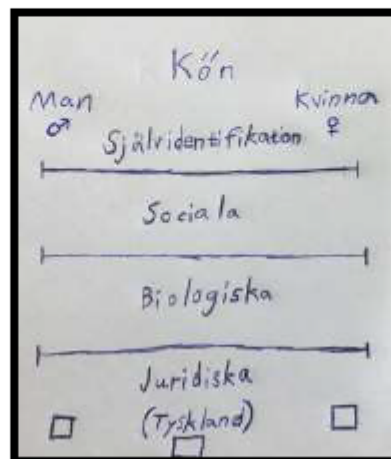 Kön
Man Kvinna
♂ ♀
Självidentifikation
Sociala
Biologiska
Juridiska
(Tyskland)